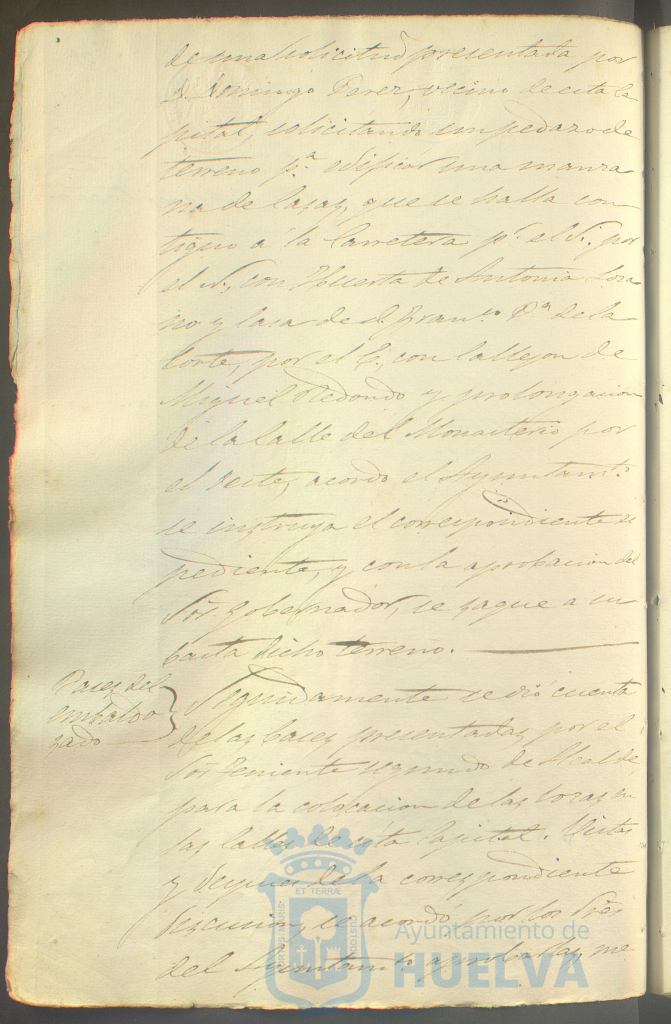 de una solicitud presentada por
D. Domingo Perez, vecino de esta Ca
pital, solicitando un pedazo de
terreno p.ª edificar una manza
na de Casas, que se halla con
tiguo á la Carretera p.r el S. por
el N., con Huerta de Antonia Loza
no y Casa de D. Fran.co P.a de la
Corte, por el E., con Callejon de
Miguel Redondo y prolongacion
de la Calle del Monasterio por
el Oeste, acordó el Ayuntam.to
se instruya el correspondiente es
pediente, y con la aprobacion del
Sor. Gobernador, se saque a su
basta dicho terreno.
Bases del
embaldo
zado
Seguidamente se dió cuenta
de las bases presentadas por el
Sor Teniente segundo de Alcalde
para la colocacion de las lozas en
las Calles de esta Capital. Vistas
y despues de la correspondiente
discusion, se acordó por los Sres
del Ayuntam.to aprobarlas, me
Ayuntamiento de
HUELVA